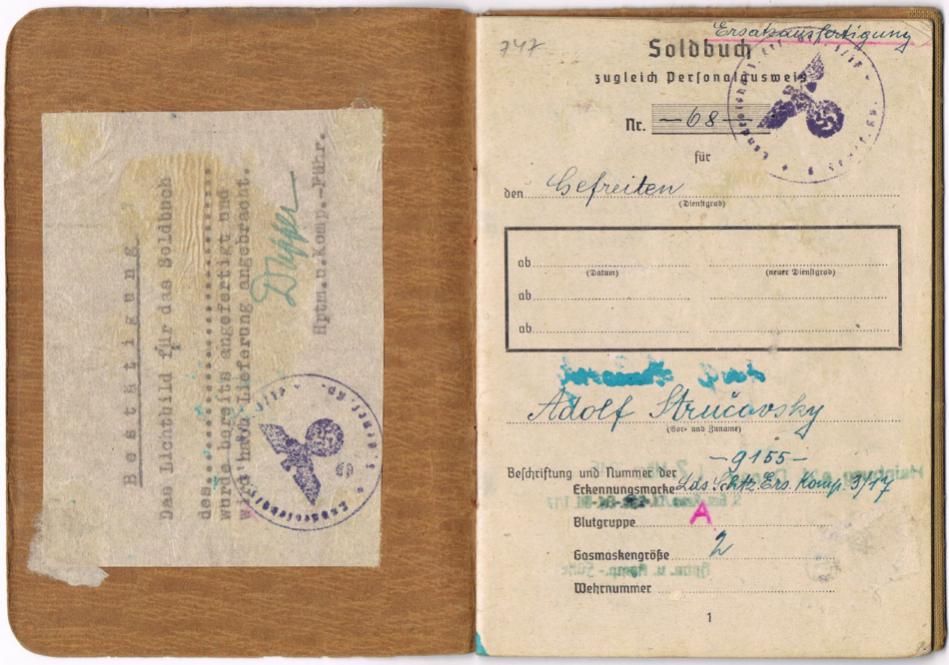 Bestätigung
Das Lichtbild für das Soldbuch
des
wurde bereits angefertigt und
wird nach Lieferung angebracht.
Hptm.u.Komp.-Führ.
Ersatzausfertigung
747
Soldbuch
zugleich Personalausweis
Nr. -68-
für
den Gefreiten
(Dienstgrad)
ab
(Datum) (neuer Dienstgrad)
ab
ab
Adolf Stručovsky
(Vor- und Zuname)
-9155-
Beschriftung und Nummer der
Erkennungsmarke Lds.Schtz.Ers.Komp. 3/17
Blutgruppe A
Gasmaskengröße 2
Wehrnummer
1